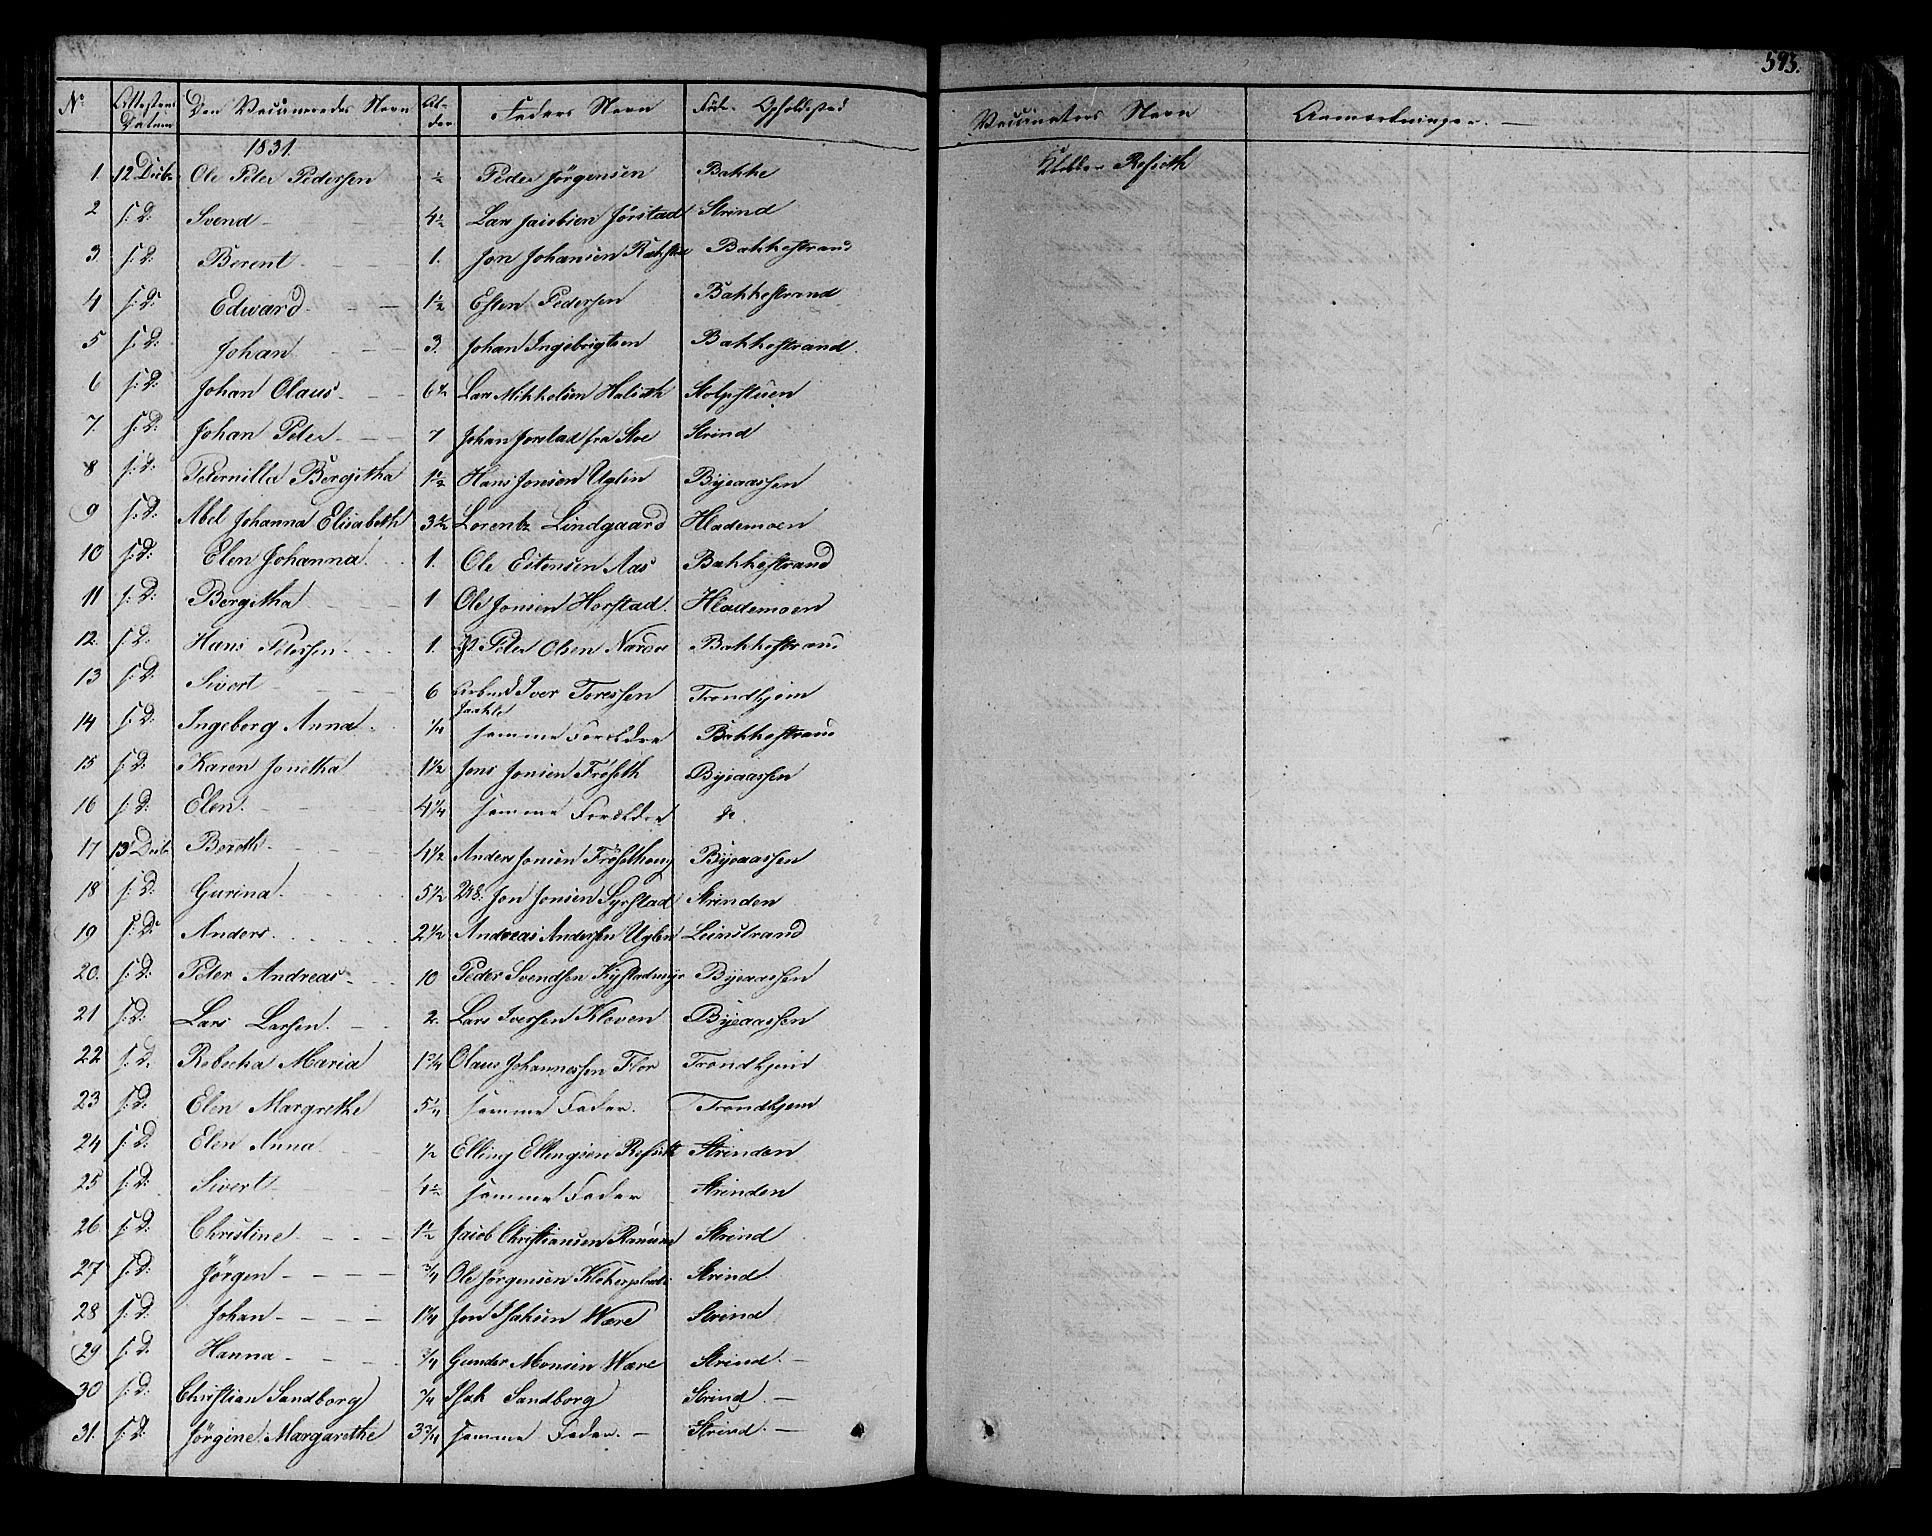 593.
No Attestens Datum Den Vaccineredes Navn Alder Faders Navn Føde- Opholdsted Vaccinators Navn Anmærkninger.
1831.
1. 12 Decbr Ole Peter Pedersen ½ Peder Jørgensen Bakke Klokker Refseth
2 s: D: Svend 4½ Lars Jacobsen Jørstad Strind
3. s: D: Berent 1. Jon Johansen Bakkestrand
4 s: D: Edward 1½ Esten Pedersen Bakkestrand
5 s: D: Johan 3. Johan Ingebrigtsen Bakkestrand.
6 s: D: Johan Olaus 6½ Lars Mikkelsen Halseth Stolpstuen
7. s: D: Johan Peter 7 Johan Jorstad fra Stoe Strind
8 s: D: Peternilla Bergitha 1½ Hans Jonsen Uglen Byeaassen
9 s: D: Abel Johanna Elisabeth 3½ Lorentz Lindgaard Hlademoen
10 s: D: Elen Johanna 1. Ole Estensen Aas Bakkestrand
11 s: D: Bergitha 1 Ole Jonsen Horstad. Hlademoen
12. s: D: Hans Petersen 1. Peter Olsen Bakkestrand
13 s: D: Sivert 6 Arbmd Iver Toressen Trondhjem
14 s: D: Ingeborg Anna ¼ samme Forældre Bakkestrand
15 s: D: Karen Jonetha 1½ Jens Jonsen Fröseth Byeaassen
16 s: D: Elen 4¼ samme Forældre do
17 13 Decbr Bereth 4½ Anders Jonsen Byeaassen
18 s: D: Gurina 5½ Jon Jonsen Syrstad Strinden
19 s: D: Anders 2½ Andreas Andersen Uglen Leinstrand
20. s: D: Peter Andreas 10 Peder Svendsen Kystadmyr Byeaassen
21 s: D: Lars Larsen 2. Lars Iversen Kleven Byeaassen
22 s: D: Rebecka Maria 1¾ Olaus Johannessen Flor Trondhjem
23 s: D: Elen Margrethe 5¼ samme Fader. Trondhjem
24 s: D: Elen Anna ½ Elling Ellingsen Refseth Strinden
25 s: D: Sivert 4½ samme Fader Strinden
26 s: D: Christine 1½ Jacob Christiansen Strind
27 s: D: Jörgen ¾ Ole Jörgensen Strind
28 s: D: Johan 1¼ Jon Isaksen Være Strind
29 s: D: Hanna ¾ Gunder Monsen Være Strind.
30 s: D: Christian Sandborg ¾ Isak Sandborg Strind.
31. s: D: Jörgine Margarethe 3¾ samme Fader. Strind.